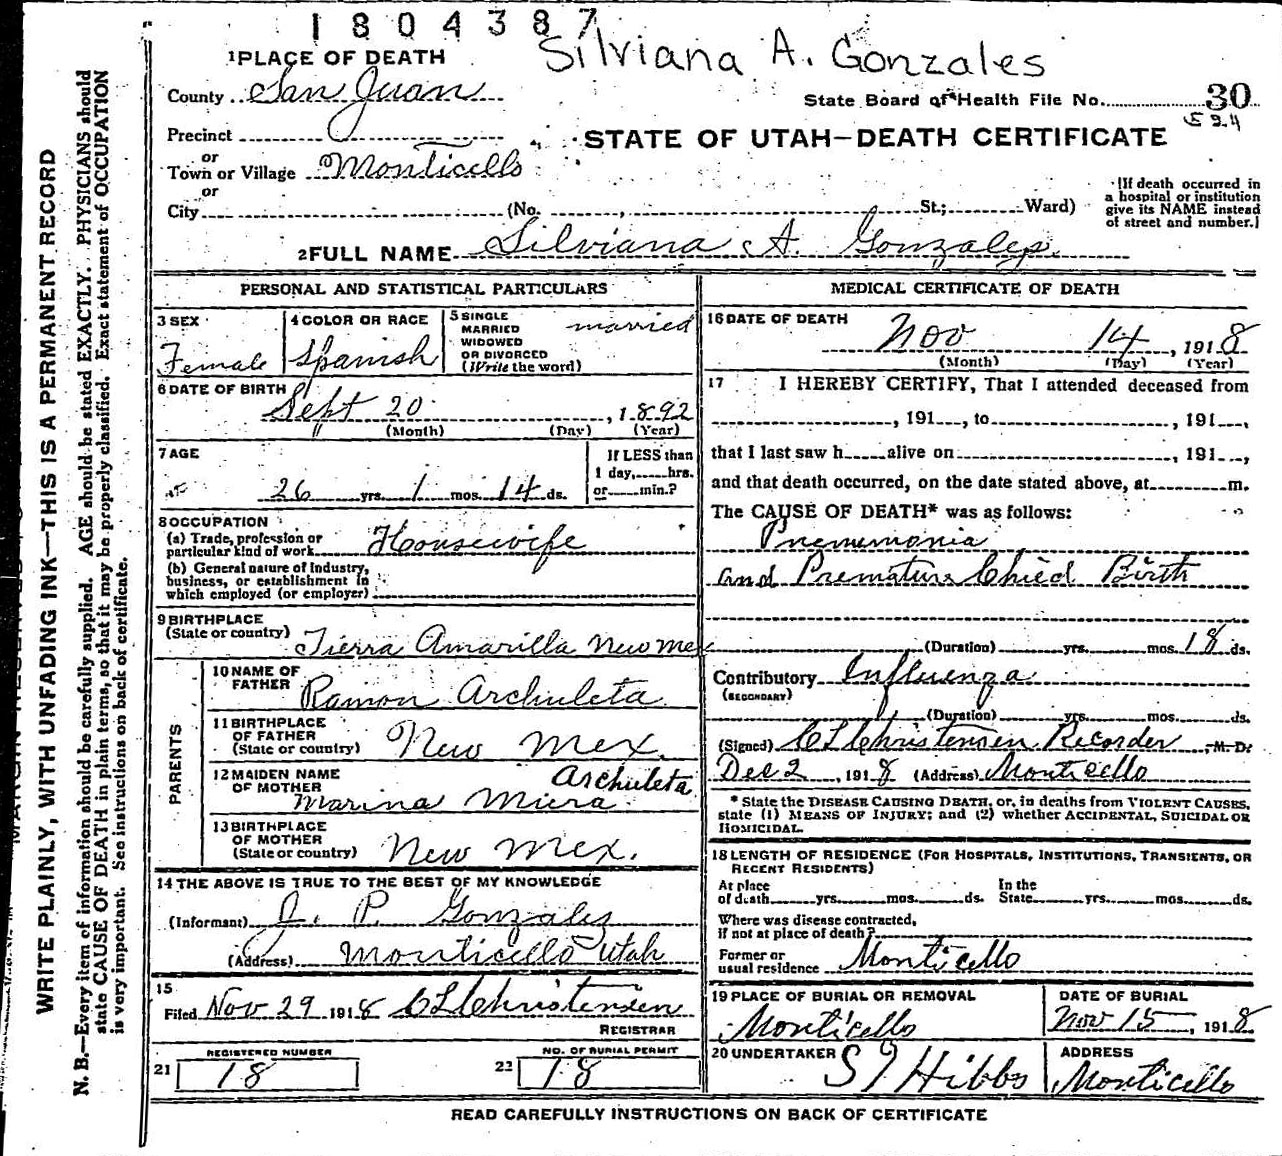 1804387
Silviana A. Gonzales
1 PLACE OF DEATH
County San Juan
State Board of Health File No. 30
Precinct
or
Town or Village Monticello
or
City (No. , St.; Ward)
STATE OF UTAH—DEATH CERTIFICATE
[If death occurred in
a hospital or institution
give its NAME instead
of street and number.]
2 FULL NAME Silviana A. Gonzales
PERSONAL AND STATISTICAL PARTICULARS
3 SEX
Female
4 COLOR OR RACE
Spanish
5 SINGLE
MARRIED
WIDOWED
OR DIVORCED
(Write the word)
married
6 DATE OF BIRTH
Sept 20, 1892
(Month) (Day) (Year)
7 AGE
26 yrs. 1 mos. 14 ds.
If LESS than
1 day, hrs.
or min.?
8 OCCUPATION
(a) Trade, profession or
particular kind of work Housewife
(b) General nature of Industry,
business, or establishment in
which employed (or employer)
9 BIRTHPLACE
(State or country) Tierra Amarilla New Mex
PARENTS
10 NAME OF
FATHER Ramon Archuleta
11 BIRTHPLACE
OF FATHER
(State or country) New Mex.
12 MAIDEN NAME
OF MOTHER Archuleta
Marina Miera
13 BIRTHPLACE
OF MOTHER
(State or country) New Mex.
14 THE ABOVE IS TRUE TO THE BEST OF MY KNOWLEDGE
(Informant) J. P. Gonzales
(Address) Monticello Utah
15
Filed Nov 29 1918 C L Christensen
REGISTRAR
21 REGISTERED NUMBER
18
22 NO. OF BURIAL PERMIT
18
MEDICAL CERTIFICATE OF DEATH
16 DATE OF DEATH
Nov 14, 1918
(Month) (Day) (Year)
17 I HEREBY CERTIFY, That I attended deceased from
, 191 , to , 191 ,
that I last saw h alive on , 191 ,
and that death occurred, on the date stated above, at m.
The CAUSE OF DEATH* was as follows:
Pnemumonia
and Premature Chied Birth
(Duration) yrs. mos. 18 ds.
Contributory Influenza
(SECONDARY)
(Duration) yrs. mos. ds.
(Signed) C L Christensen Recorder M. D.
Dec 2, 1918 (Address) Monticello
* State the DISEASE CAUSING DEATH, or, in deaths from VIOLENT CAUSES,
state (1) MEANS OF INJURY; and (2) whether ACCIDENTAL, SUICIDAL OR
HOMICIDAL.
18 LENGTH OF RESIDENCE (FOR HOSPITALS, INSTITUTIONS, TRANSIENTS, OR
RECENT RESIDENTS)
At place
of death yrs. mos. ds.
In the
State yrs. mos. ds.
Where was disease contracted,
if not at place of death?
Former or
usual residence Monticello
19 PLACE OF BURIAL OR REMOVAL
Monticello
DATE OF BURIAL
Nov 15, 1918
20 UNDERTAKER S J Hibbs
ADDRESS
Monticello
READ CAREFULLY INSTRUCTIONS ON BACK OF CERTIFICATE
WRITE PLAINLY, WITH UNFADING INK—THIS IS A PERMANENT RECORD
N. B.—Every item of information should be carefully supplied. AGE should be stated EXACTLY. PHYSICIANS should
state CAUSE OF DEATH in plain terms, so that it may be properly classified. Exact statement of OCCUPATION
is very important. See instructions on back of certificate.